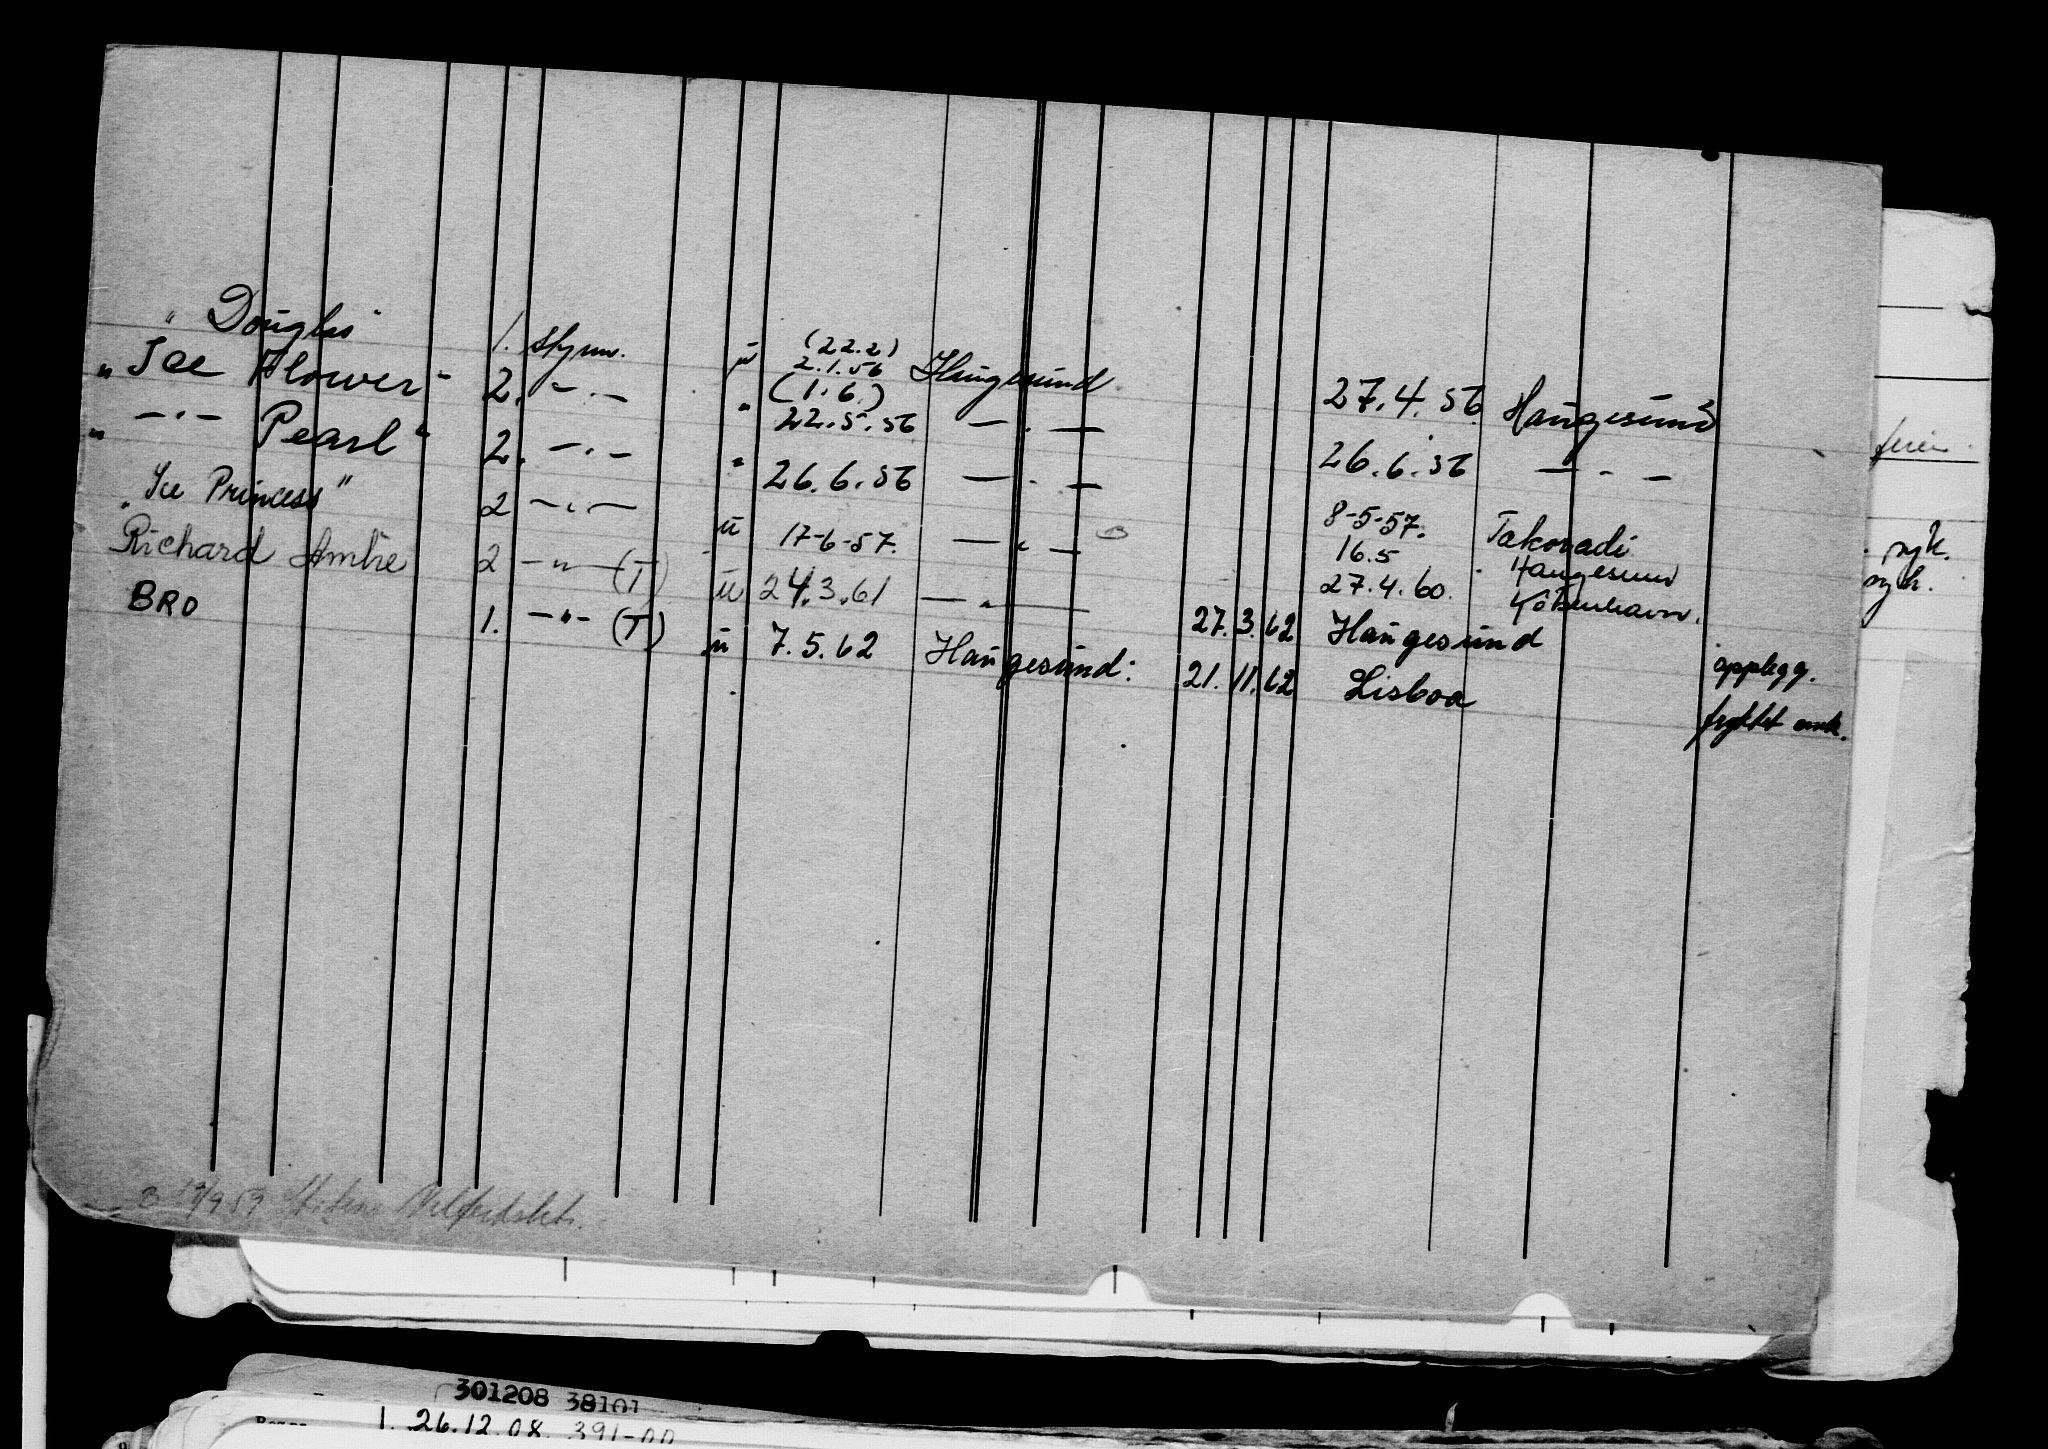 "Douglas" 1. styrm. u (22.2) 2.1.56 Haugesund 27.4.56 Haugesund
"Ice Flower" 2. -"- " (1.6.) 22.5.56 -"- 26.6.56 -"-
-"- Pearl" 2. -"- " 26.6.56 -"- 8-5-57. Takoradi syk.
"Ice Princess" 2 -"- u 17-6-57. -"- 16.5 Haugesund
27.4.60. København. syk.
Richard Amlie 2 -"- (T) u 24.3.61 -"- 27.3.62 Haugesund opplegg.
BRO 1. -"- (T) u 7.5.62 Haugesund: 21.11.62 Lisboa
ferie
301208 38101
1. 26.12.08. 391-00